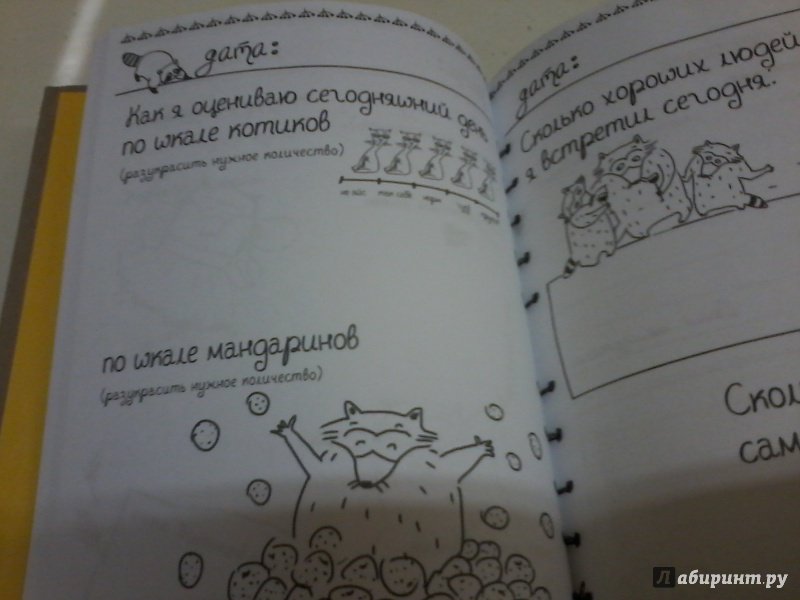 дата:
Как я оцениваю сегодняшний день
по шкале котиков
(разукрасить нужное количество)
по шкале мандаринов
(разукрасить нужное количество)
дата:
Сколько хороших людей
я встретил сегодня:
Лабиринт.ру